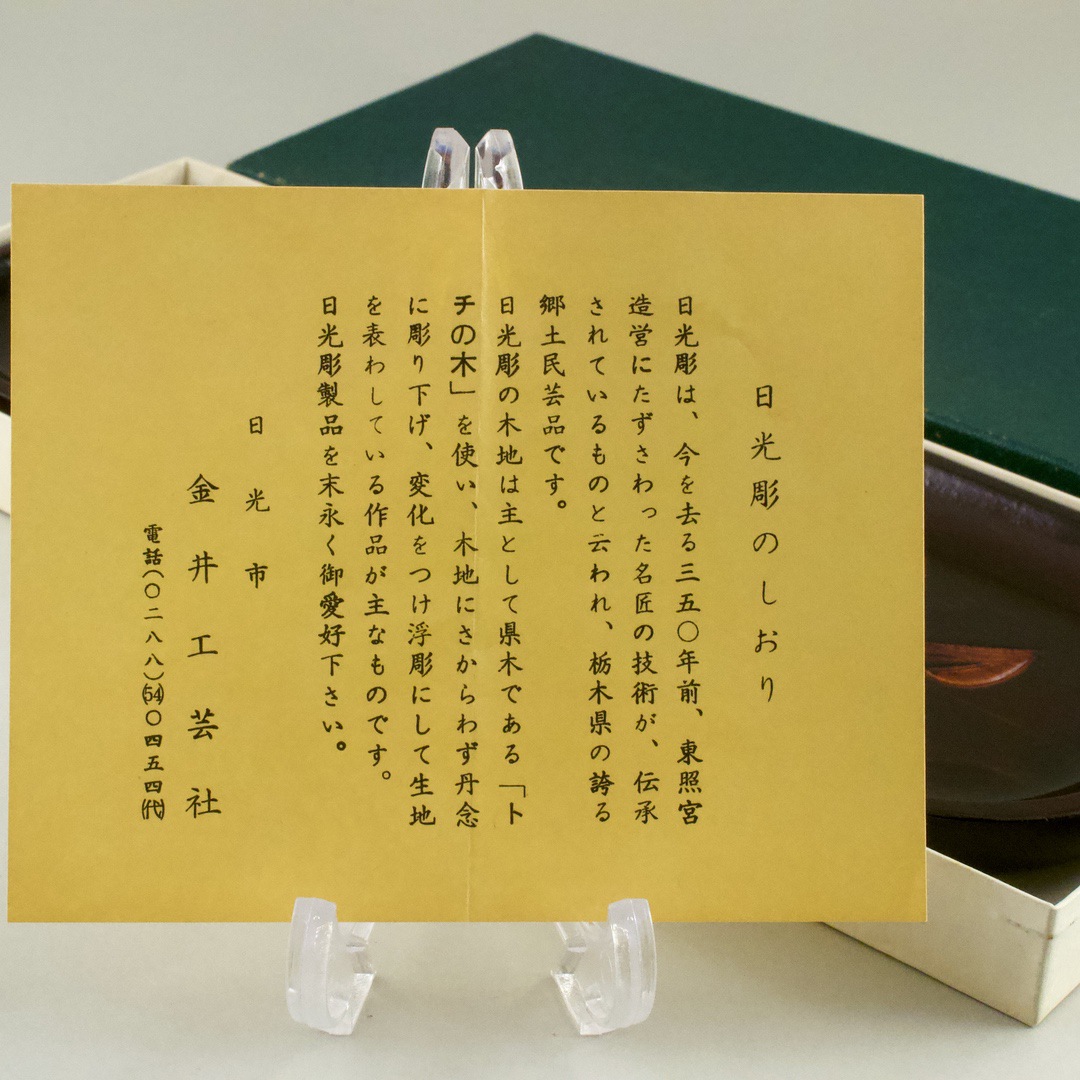 日光彫のしおり
日光彫は、今を去る三五〇年前、東照宮
造営にたずさわった名匠の技術が、伝承
されているものと云われ、栃木県の誇る
郷土民芸品です。
日光彫の木地は主として県木である「ト
チの木」を使い、木地にさからわず丹念
に彫り下げ、変化をつけ浮彫にして生地
を表わしている作品が主なものです。
日光彫製品を末永く御愛好下さい。
日光市
金井工芸社
電話(〇二八八)(54)〇四五四(代)